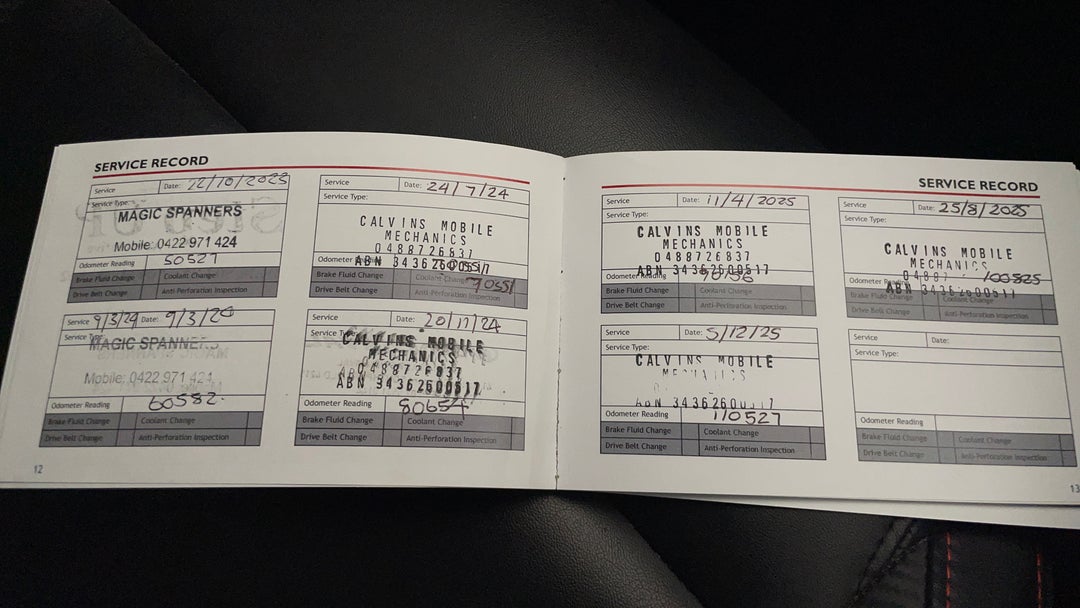 SERVICE RECORD
Service Date: 22/10/2023
Service Type:
MAGIC SPANNERS
Mobile: 0422 971 424
Odometer Reading 50527
Brake Fluid Change Coolant Change
Drive Belt Change Anti-Perforation Inspection
Service 9/3/24 Date: 9/3/20
Service Type:
MAGIC SPANNERS
Mobile: 0422 971 424
Odometer Reading 60582.
Brake Fluid Change Coolant Change
Drive Belt Change Anti-Perforation Inspection
12
Service Date: 24/7/24
Service Type:
CALVINS MOBILE
MECHANICS
0488726837
ABN 34362600517
Odometer Reading
Brake Fluid Change Coolant Change 70551
Drive Belt Change Anti-Perforation Inspection
Service Date: 20/11/24
Service
CALVINS MOBILE
MECHANICS
0488726837
ABN 34362600517
Odometer Reading 80654
Brake Fluid Change Coolant Change
Drive Belt Change Anti-Perforation Inspection
SERVICE RECORD
Service Date: 11/4/2025
Service Type:
CALVINS MOBILE
MECHANICS
0488726837
ABN 34362600517
Odometer Reading
Brake Fluid Change Coolant Change
Drive Belt Change Anti-Perforation Inspection
Service Date: 5/12/25
Service Type:
CALVINS MOBILE
MECHANICS
ABN 34362600517
Odometer Reading 110527
Brake Fluid Change Coolant Change
Drive Belt Change Anti-Perforation Inspection
Service Date: 25/8/2025
Service Type:
CALVINS MOBILE
MECHANICS
100525
ABN 34362600517
Odometer
Brake Fluid Change Coolant Change
Drive Belt Change Anti-Perforation Inspection
Service Date:
Service Type:
Odometer Reading
Brake Fluid Change Coolant Change
Drive Belt Change Anti-Perforation Inspection
13